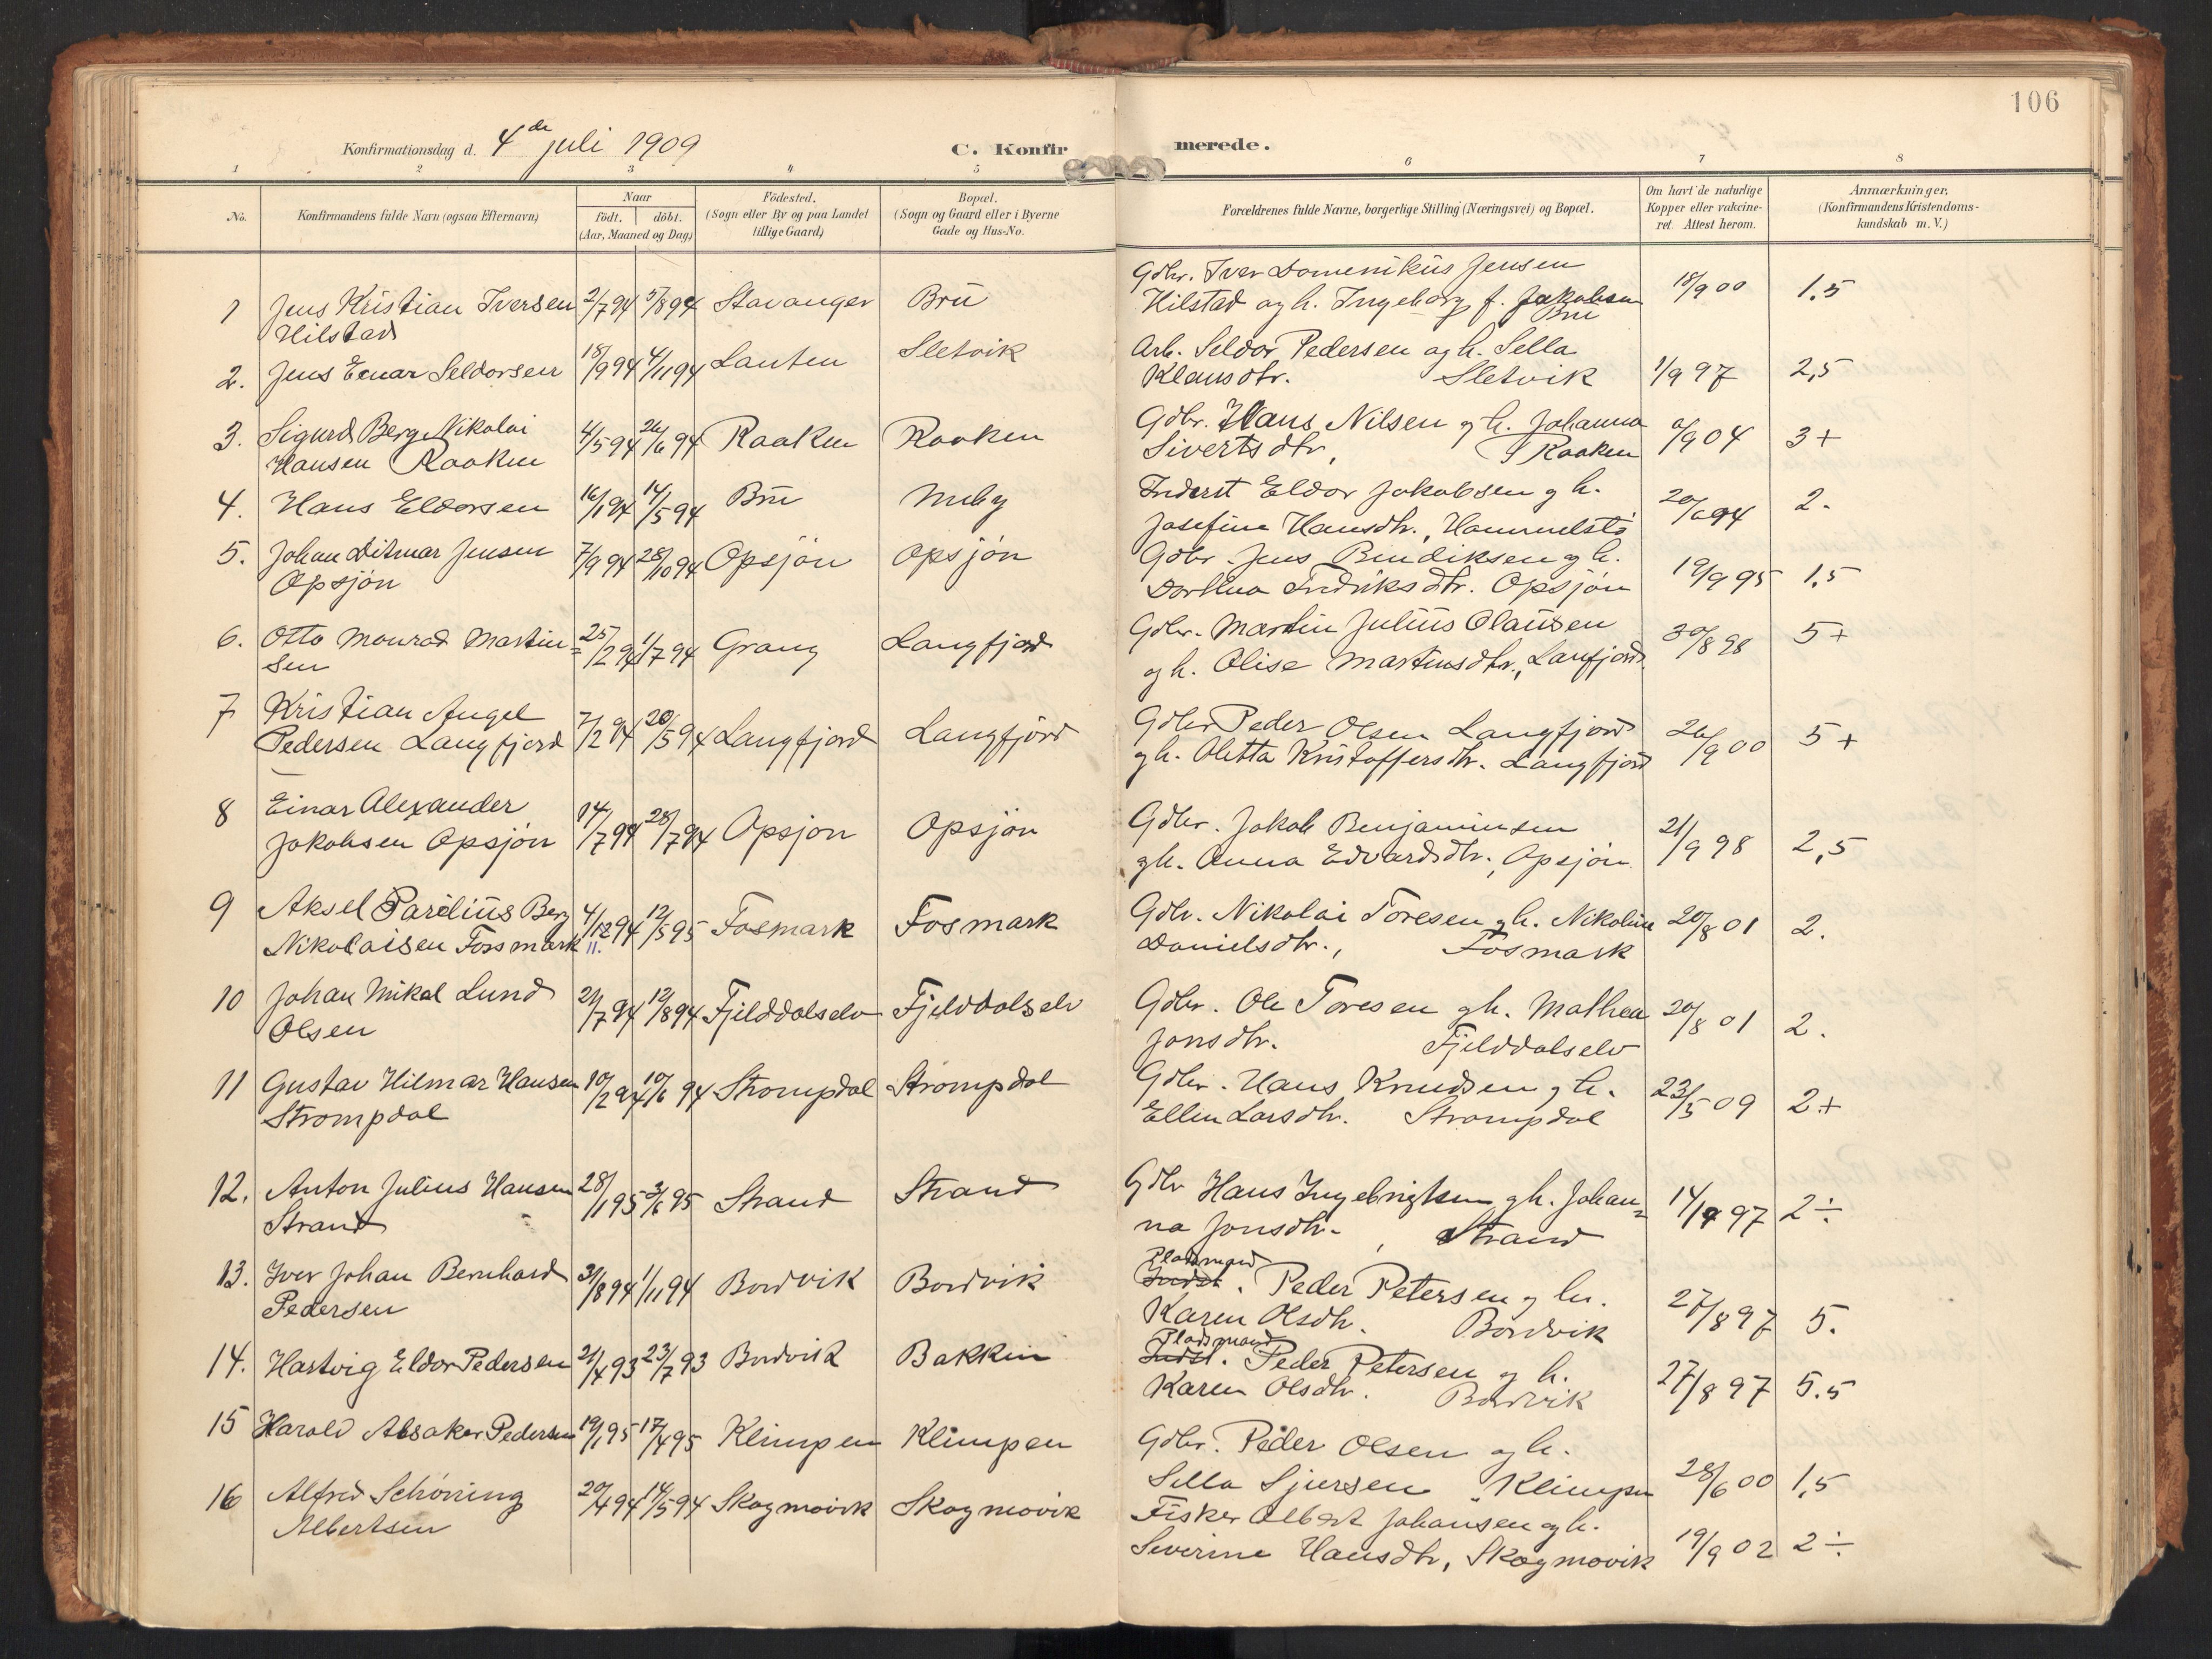 106
Konfirmationsdag d. 4de juli 1909
C. Konfirmerede.
1 2 3 4 5 6 7 8
No.
Konfirmandens fulde Navn (ogsaa Efternavn)
Naar
födt. döbt.
(Aar, Maaned og Dag)
Födested.
(Sogn eller By og paa Landet
tillige Gaard)
Bopæl.
(Sogn og Gaard eller i Byerne
Gade og Hus-No.
Forældrenes fulde Navne, borgerlige Stilling (Næringsvei) og Bopæl.
Om havt de naturlige
Kopper eller vakcine-
ret. Attest herom.
Anmærkninger.
(Konfirmandens Kristendoms-
kundskab m. V.)
1 Jens Kristian Iversen 2/7 94 5/8 94 Stavanger Brü Gdbr. Iver Domenikus Jensen 18/9 00 1,5
Hilstad Hilstad og h. Ingeborg f. Jakobsen
Bru
2. Jens Einar Seldorsen 18/9 94 4/11 94 Lauten Sletvik Arb. Seldor Pedersen og h. Sella
Klausdtr. Sletvik 1/9 97 2,5
3. Sigurd Berg Nikolai 4/5 94 24/6 94 Raaken Raaken Gdbr. Hans Nilsen og h. Johanna /9 04 3+
Hansen Raaken Sivertsdtr, Raaken
4. Hans Eldorsen 16/1 94 14/5 94 Brü Meby Inderst Eldor Jakobsen og h. 20/6 94 2.
Josefine Hansdtr., Hammelstö
5. Johan Ditmar Jensen 7/9 94 28/10 94 Opsjön Opsjön Gdbr. Jens Bendiksen og h. 19/9 95 1,5
Opsjön Dorthea Fredriksdtr. Opsjön
6. Otto Monrad Martin= 25/2 94 1/7 94 Grang Langfjord Gdbr. Martin Julius Olausen 30/8 98 5+
sen og h. Olise Martinsdtr., Lanfjord
7 Kristian Angel 7/2 94 20/5 94 Langfjord Langfjord Gdbr Peder Olsen Langfjord 26/9 00 5+
Pedersen Langfjord og h. Oletta Kristoffersdtr. Langfjord
8 Einar Alexander 14/7 94 28/7 94 Opsjon Opsjön Gdbr. Jakob Benjaminsen 21/9 98 2,5
Jakobsen Opsjön og h. Anna Edvardsdtr., Opsjön
9 Aksel Parelius Berg 4/12 94 12/5 95 Fosmark Fosmark Gdbr. Nikolai Toresen og h. Nikoline 20/8 01 2.
Nikolaisen Forsmark 11. Danielsdtr., Fosmark
10 Johan Mikal Lund 21/7 94 12/8 94 Fjelddalselv Fjelddalselv Gdbr. Ole Toresen og h. Mathea 20/8 01 2.
Olsen Jonsdtr. Fjelddalselv
11 Gustav Hilmar Hansen 10/2 94 10/6 94 Strompdal Strompdal Gdbr. Hans Knudsen og h. 23/5 09 2+
Strompdal Ellen Larsdtr. Strompdal
12. Anton Julius Hansen 28/1 95 3/6 95 Strand Strand Gdbr Hans Ingebrigtsen og h. Johan= 14/9 97 2÷
Strand na Jonsdtr., Strand
Pladsmand
13. Iver Johan Bernhard 31/8 94 1/11 94 Bordvik Bordvik Indst. Peder Petersen og h. 27/8 97 5.
Pedersen Karen Olsdtr. Bordvik
Pladsmand
14. Hartvig Eldor Pedersen 21/4 93 23/7 93 Bordvik Bakken Indst. Peder Petersen og h. 27/8 97 5.5
Karen Olsdtr. Bordvik
15 Harald Absakor Pedersen 19/1 95 17/4 95 Klimpen Klimpen Gdbr. Peder Olsen og h.
Sella Sjursen, Klimpen 28/6 00 1,5
16 Alfred Schöning 20/4 94 14/5 94 Skogmovik Skogmovik Fisker Albert Johansen og h.
Albertsen Severine Hansdtr, Skogmovik 19/9 02 2÷